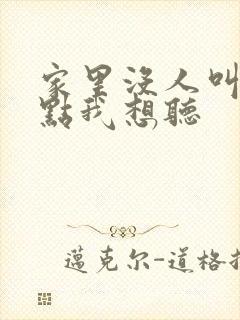 家里没人叫
點我想聽
邁克尔-道格拉